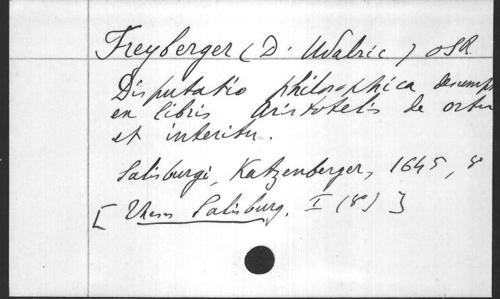 Freyberger (D. Udalric) OSB
Disputatio philosophica desumpt
ex libris Aristotelis de ortu
et interitu.
Salisburgi, Katzenberger, 1645, 8
[Theses Salisburg. I (8)]